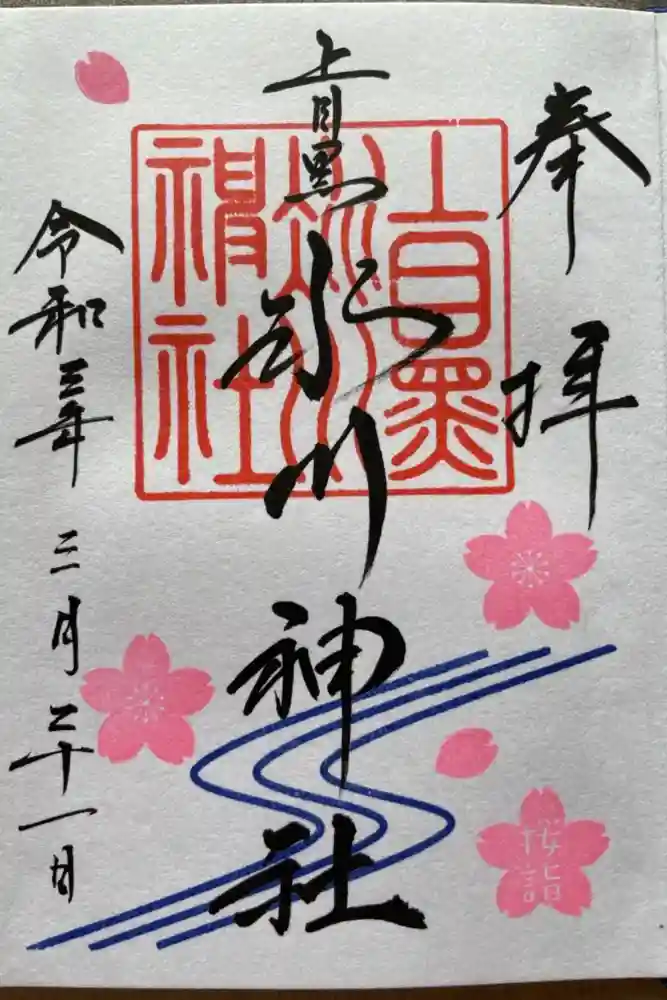 奉拝
上目黒
氷川神社
令和三年三月二十一日
上目黒
氷川
神社
桜詣